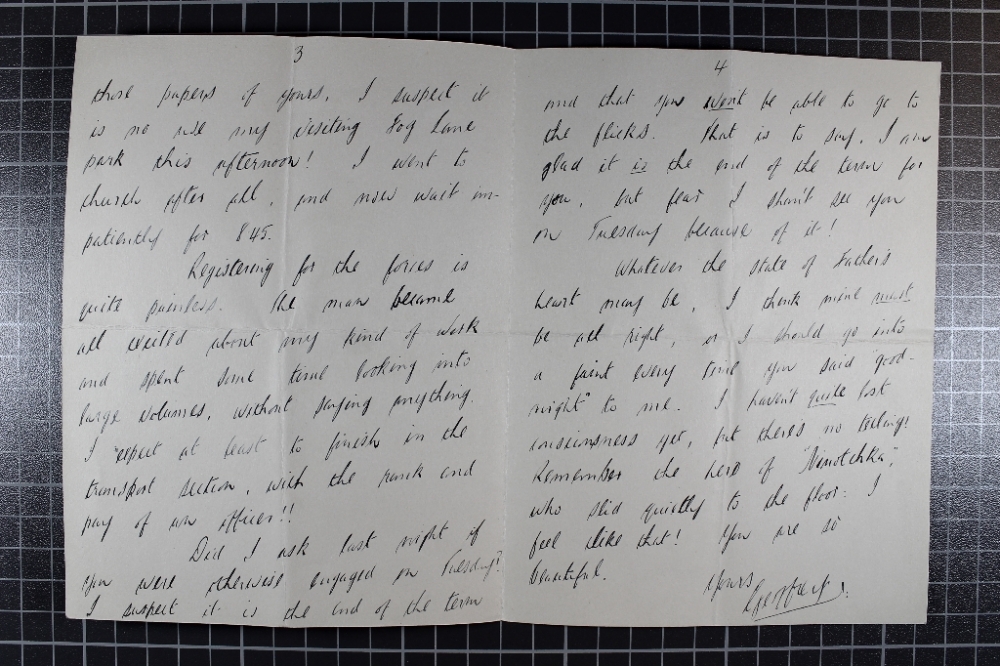 3
those papers of yours. I suspect it
is no use my visiting Fog Lane
park this afternoon! I went to
church after all, and now wait im-
patiently for 8.45.
Registering for the forces is
quite painless. The man became
all excited about my kind of work
and spent some time looking into
large volumes, without saying anything.
I expect at least to finish in the
transport section, with the rank and
pay of an officer!!
Did I ask last night if
you were otherwise engaged on Tuesday?
I suspect it is the end of the term
4
and that you won't be able to go to
the flicks. That is to say, I am
glad it is the end of the term for
you, but fear I shan't see you
on Tuesday because of it!
Whatever the state of Father's
heart may be, I think mine must
be all right, or I should go into
a faint every time you said "good-
night" to me. I haven't quite lost
consciousness yet, but there's no telling!
Remember the hero of "Ninotchka",
who slid quietly to the floor: I
feel like that! You are so
beautiful.
Yours
Geoffrey.